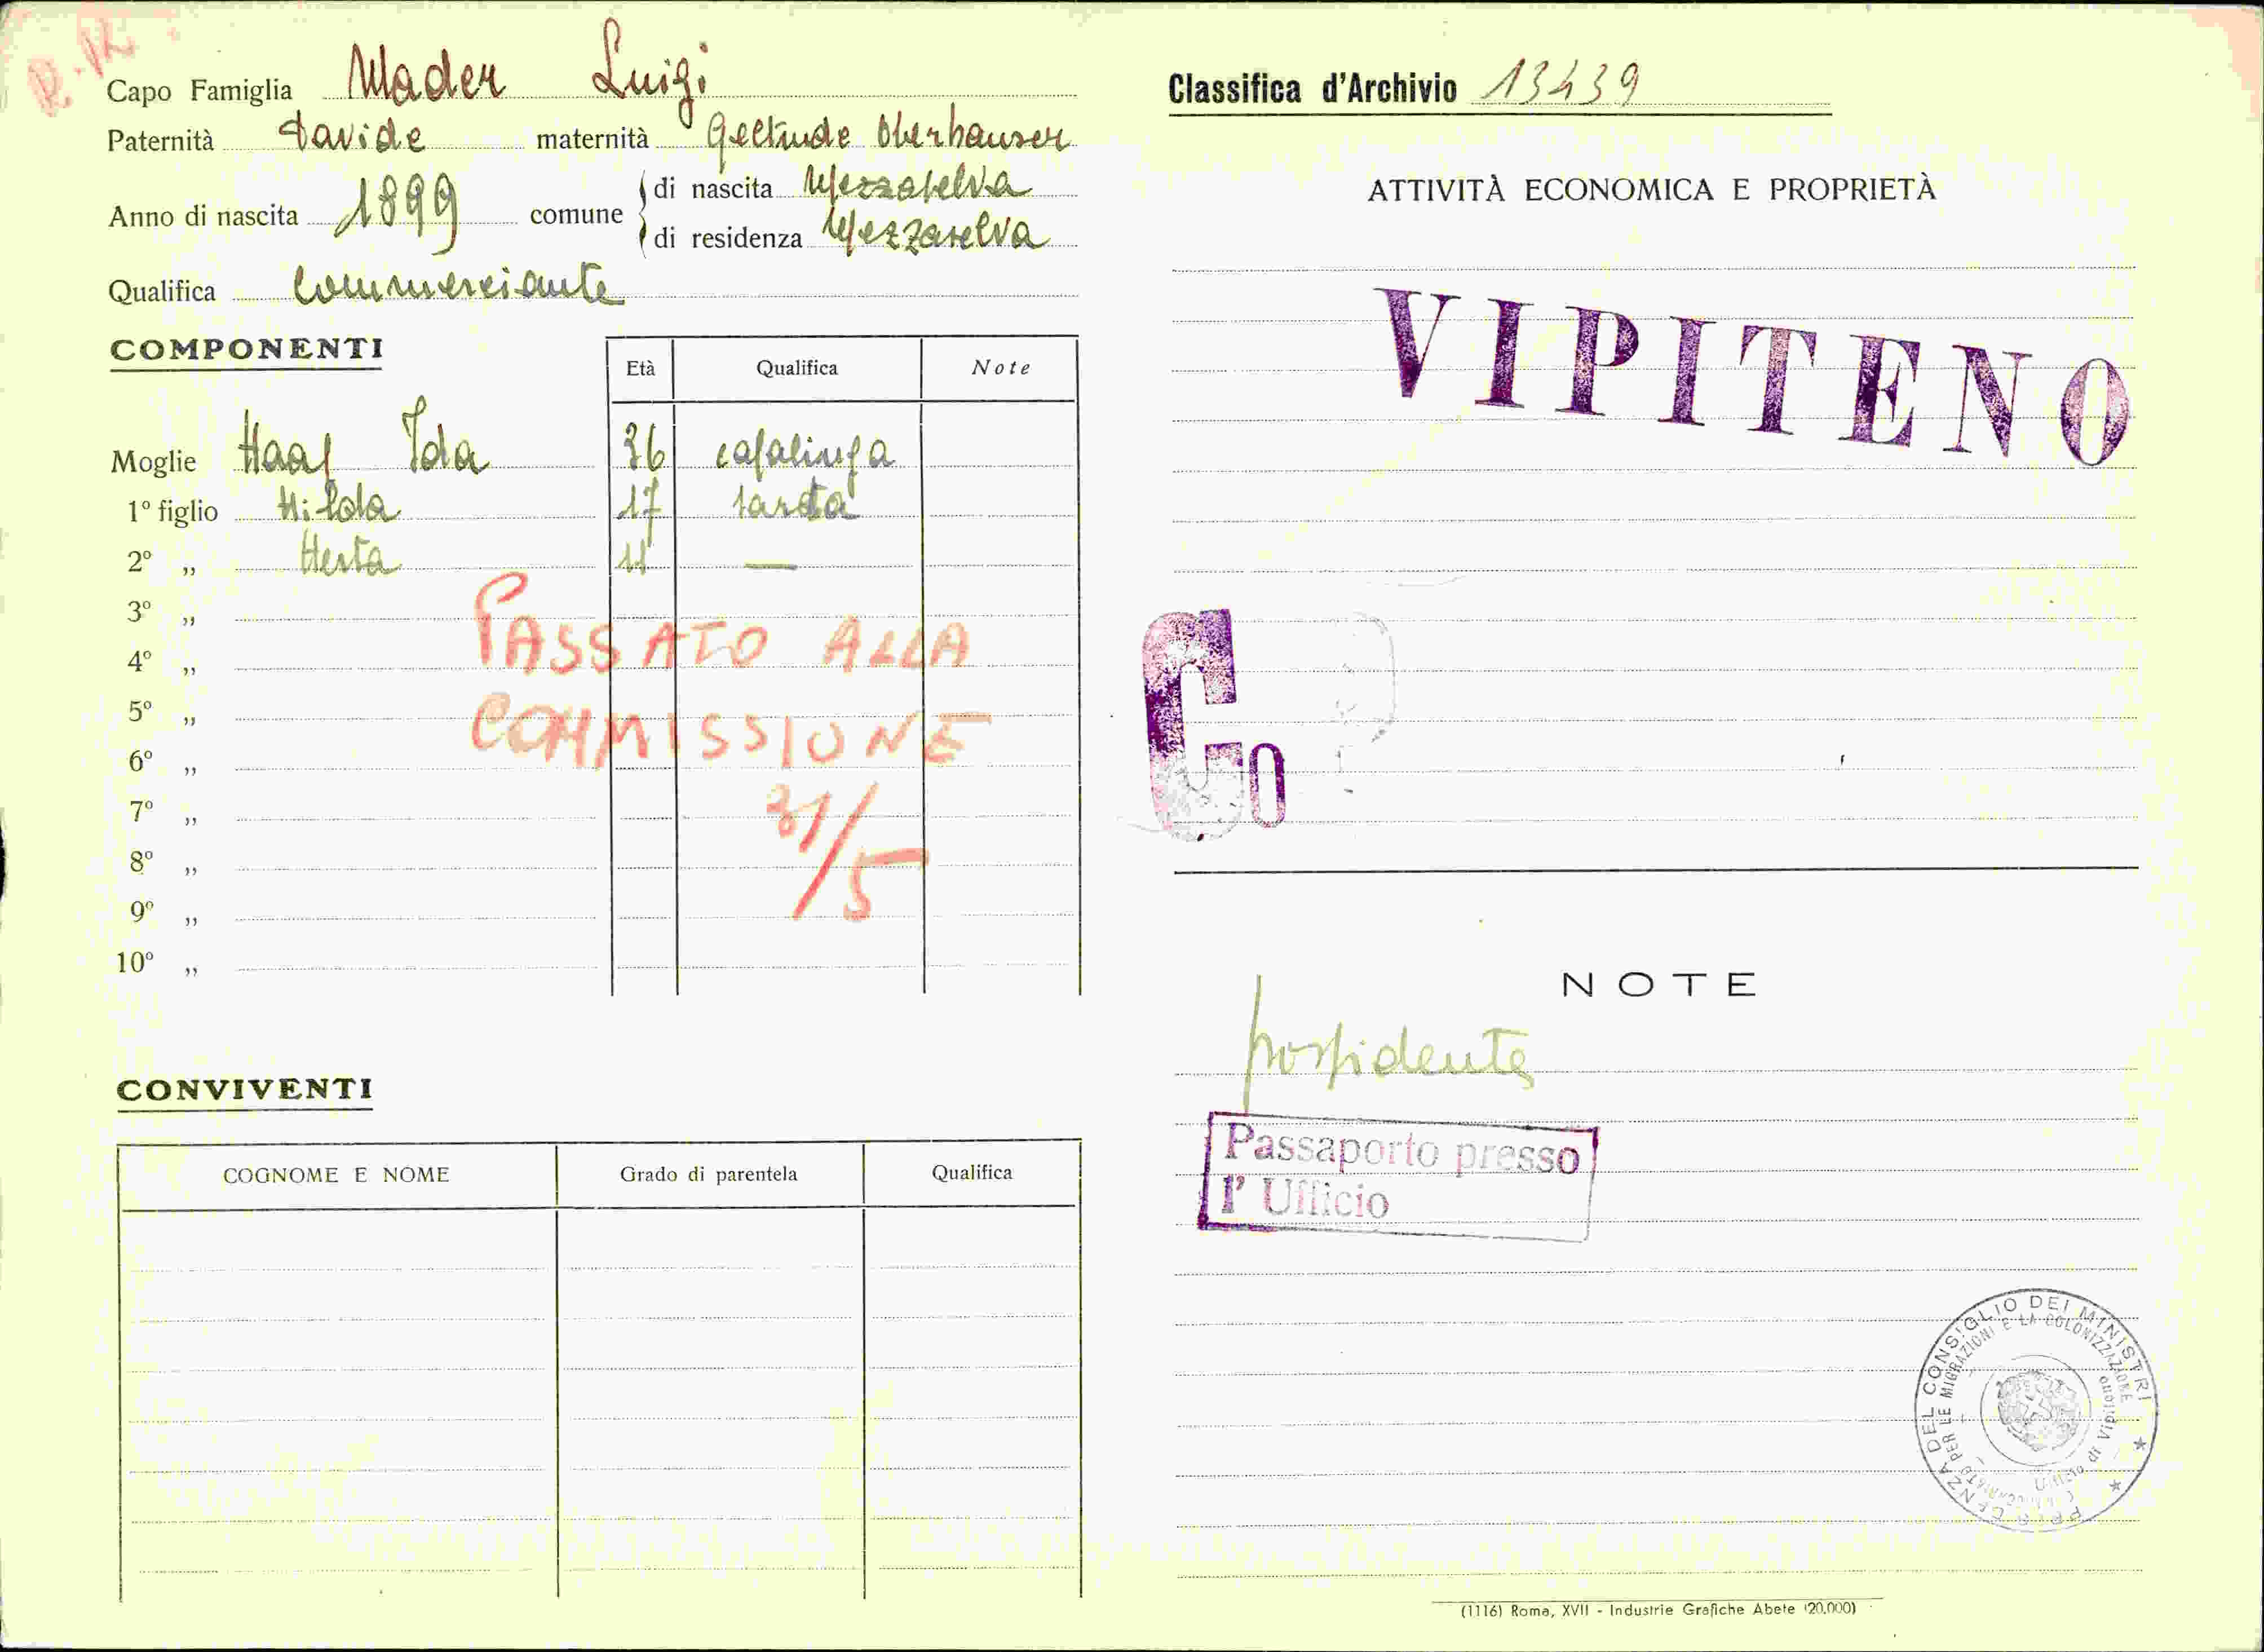 R.M.
Capo Famiglia Mader Luigi
Paternità Davide maternità Geltrude Oberhauser
Anno di nascita 1899 comune di nascita Mezzaselva
di residenza Mezzaselva
Qualifica commerciante
COMPONENTI
Età Qualifica Note
Moglie Haas Ida 36 casalinga
1º figlio Hilda 17 sarta
2º „ Herta 11 —
3º „
4º „
5º „
6º „
7º „
8º „
9º „
10º „
PASSATO ALLA
COMMISSIONE
31/5
CONVIVENTI
COGNOME E NOME Grado di parentela Qualifica
Classifica d'Archivio 13439
ATTIVITÀ ECONOMICA E PROPRIETÀ
VIPITENO
Co
NOTE
possidente
Passaporto presso
l' Ufficio
PRESIDENZA DEL CONSIGLIO DEI MINISTRI
PER LE MIGRAZIONI E LA COLONIZZAZIONE
Ufficio di Vipiteno
(1116) Roma, XVII - Industrie Grafiche Abete (20.000)